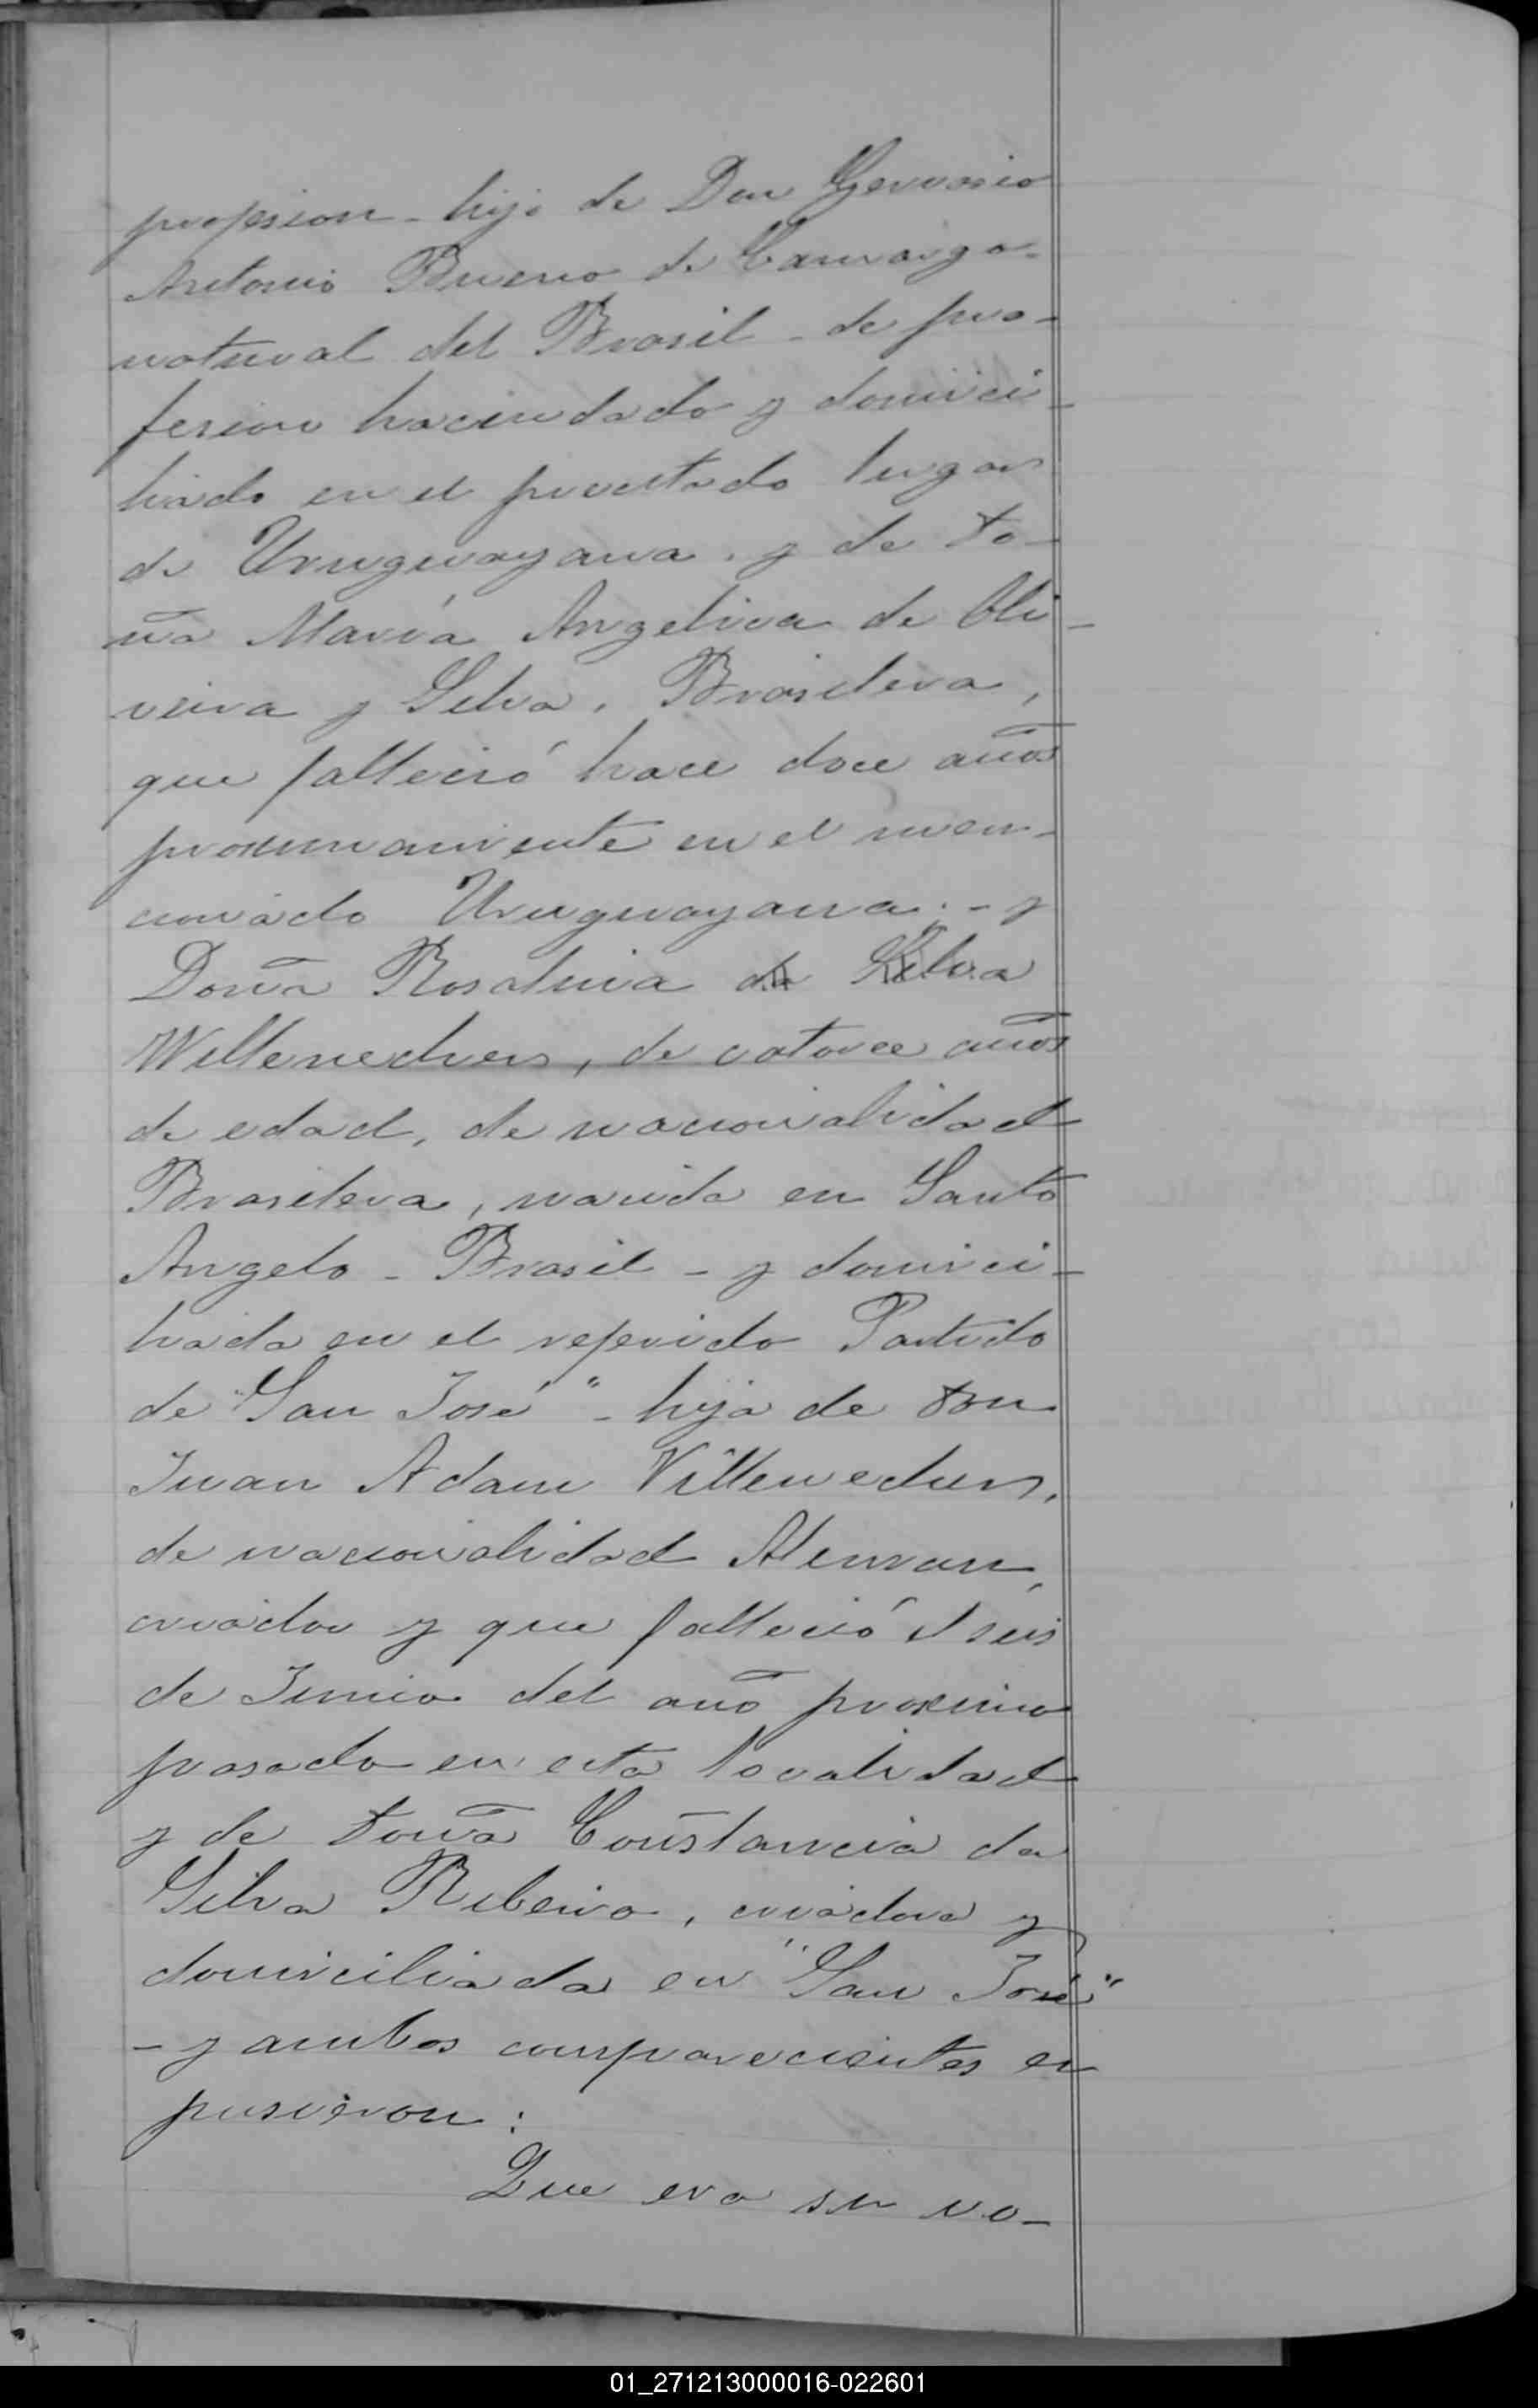 profesion - hijo de Don Gervasio
Antonio Bueno de Camargo -
natural del Brasil - de pro-
fesion hacendado y domici-
liado en el precitado lugar
de Uruguayana. y de Do-
ña María Angelica de Oli-
veira y Silva, Brasilera,
que falleció hace doce años
proximamente en el men-
cionado Uruguayana. - y
Doña Rosalina da Silva
Willenechers, de catorce años
de edad, de nacionalidad
Brasilera, nacida en Santo
Angelo - Brasil - y domici-
liada en el referido Partido
de "San José" - hija de Don
Juan Adam
de nacionalidad Aleman,
criador y que falleció el seis
de Junio del año proximo
pasado en esta localidad
y de Doña Constancia da
Silva Ribeiro, criadora y
domiciliada en "San José"
- y ambos comparecientes ex
pusieron:
Que era su vo-
01_271213000016-022601